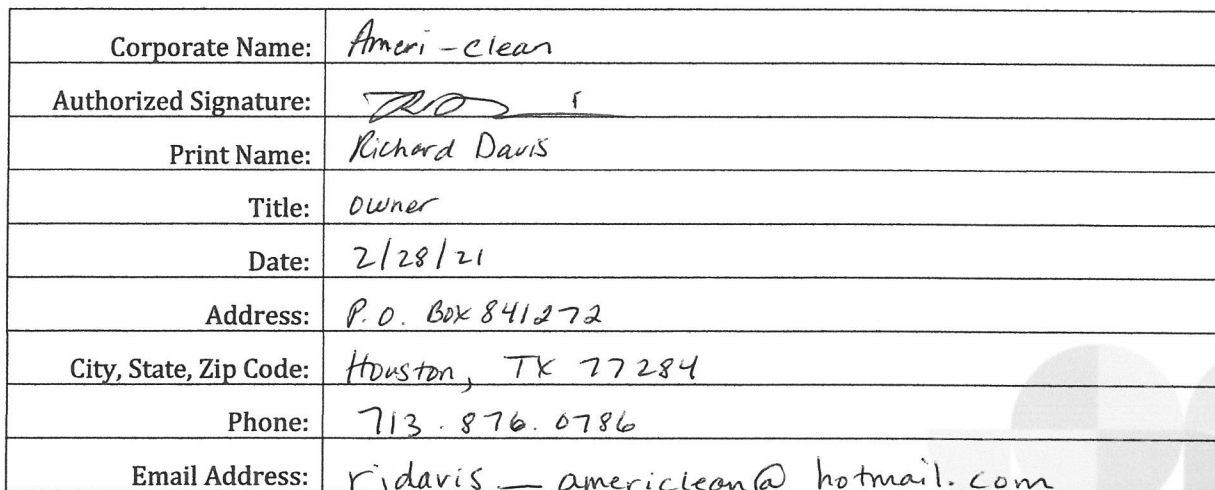 Corporate Name: Ameri-clean
Authorized Signature:
Print Name: Richard Davis
Title: owner
Date: 2/28/21
Address: P.O. Box 841272
City, State, Zip Code: Houston, TX 77284
Phone: 713.876.0786
Email Address: rjdavis_americlean@hotmail.com